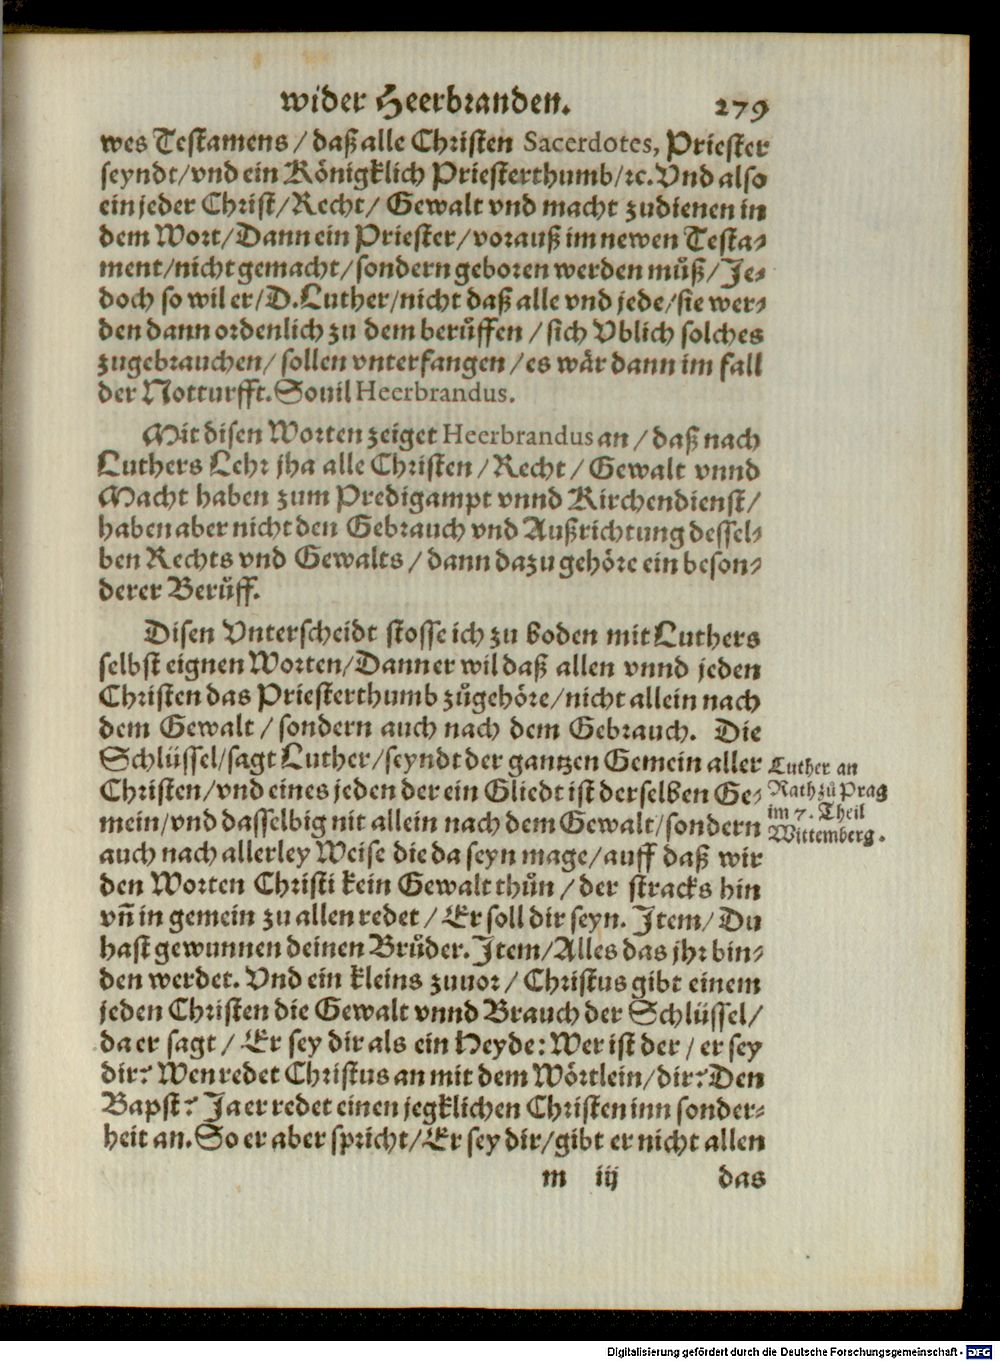 wider Heerbranden. 279
wes Testamens / daß alle Christen Sacerdotes, Priester
seyndt/vnd ein Königklich Priesterthumb/ꝛc. Vnd also
ein jeder Christ/Recht/ Gewalt vnd macht zudienen in
dem Wort/Dann ein Priester/vorauß im newen Testa⸗
ment/nicht gemacht/sondern geboren werden můß/Je⸗
doch so wil er/D. Luther/nicht daß alle vnd jede/sie wer⸗
den dann ordenlich zu dem berůffen /sich Vblich solches
zugebrauchen/ sollen vnterfangen /es wär dann im fall
der Notturfft. Souil Heerbrandus.
Mit disen Worten zeiget Heerbrandus an / daß nach
Luthers Lehr jha alle Christen /Recht/ Gewalt vnnd
Macht haben zum Predigampt vnnd Kirchendienst/
haben aber nicht den Gebrauch vnd Außrichtung dessel⸗
ben Rechts vnd Gewalts / dann dazu gehöre ein beson⸗
derer Berůff.
Disen Vnterscheidt stosse ich zu boden mit Luthers
selbst eignen Worten/Dann er wil daß allen vnnd jeden
Christen das Priesterthumb zůgehöre/nicht allein nach
dem Gewalt / sondern auch nach dem Gebrauch. Die
Schlüssel/sagt Luther/seyndt der gantzen Gemein aller
Christen/vnd eines jeden der ein Gliedt ist derselben Ge⸗
mein/vnd dasselbig nit allein nach dem Gewalt/sondern
auch nach allerley Weise die da seyn mage/auff daß wir
den Worten Christi kein Gewalt thůn / der stracks hin
vñ in gemein zu allen redet / Er soll dir seyn. Jtem/ Du
hast gewunnen deinen Brůder. Jtem/Alles das jhr bin⸗
den werdet. Vnd ein kleins zuuor / Christus gibt einem
jeden Christen die Gewalt vnnd Brauch der Schlüssel/
da er sagt / Er sey dir als ein Heyde: Wer ist der / er sey
dir? Wen redet Christus an mit dem Wörtlein/dir? Den
Bapst? Ja er redet einen jegklichen Christen inn sonder⸗
heit an. So er aber spricht/Er sey dir/gibt er nicht allen
Luther an
Rath zů Prag
im 7. Theil
Wittemberg.
m iij das
Digitalisierung gefördert durch die Deutsche Forschungsgemeinschaft - DFG